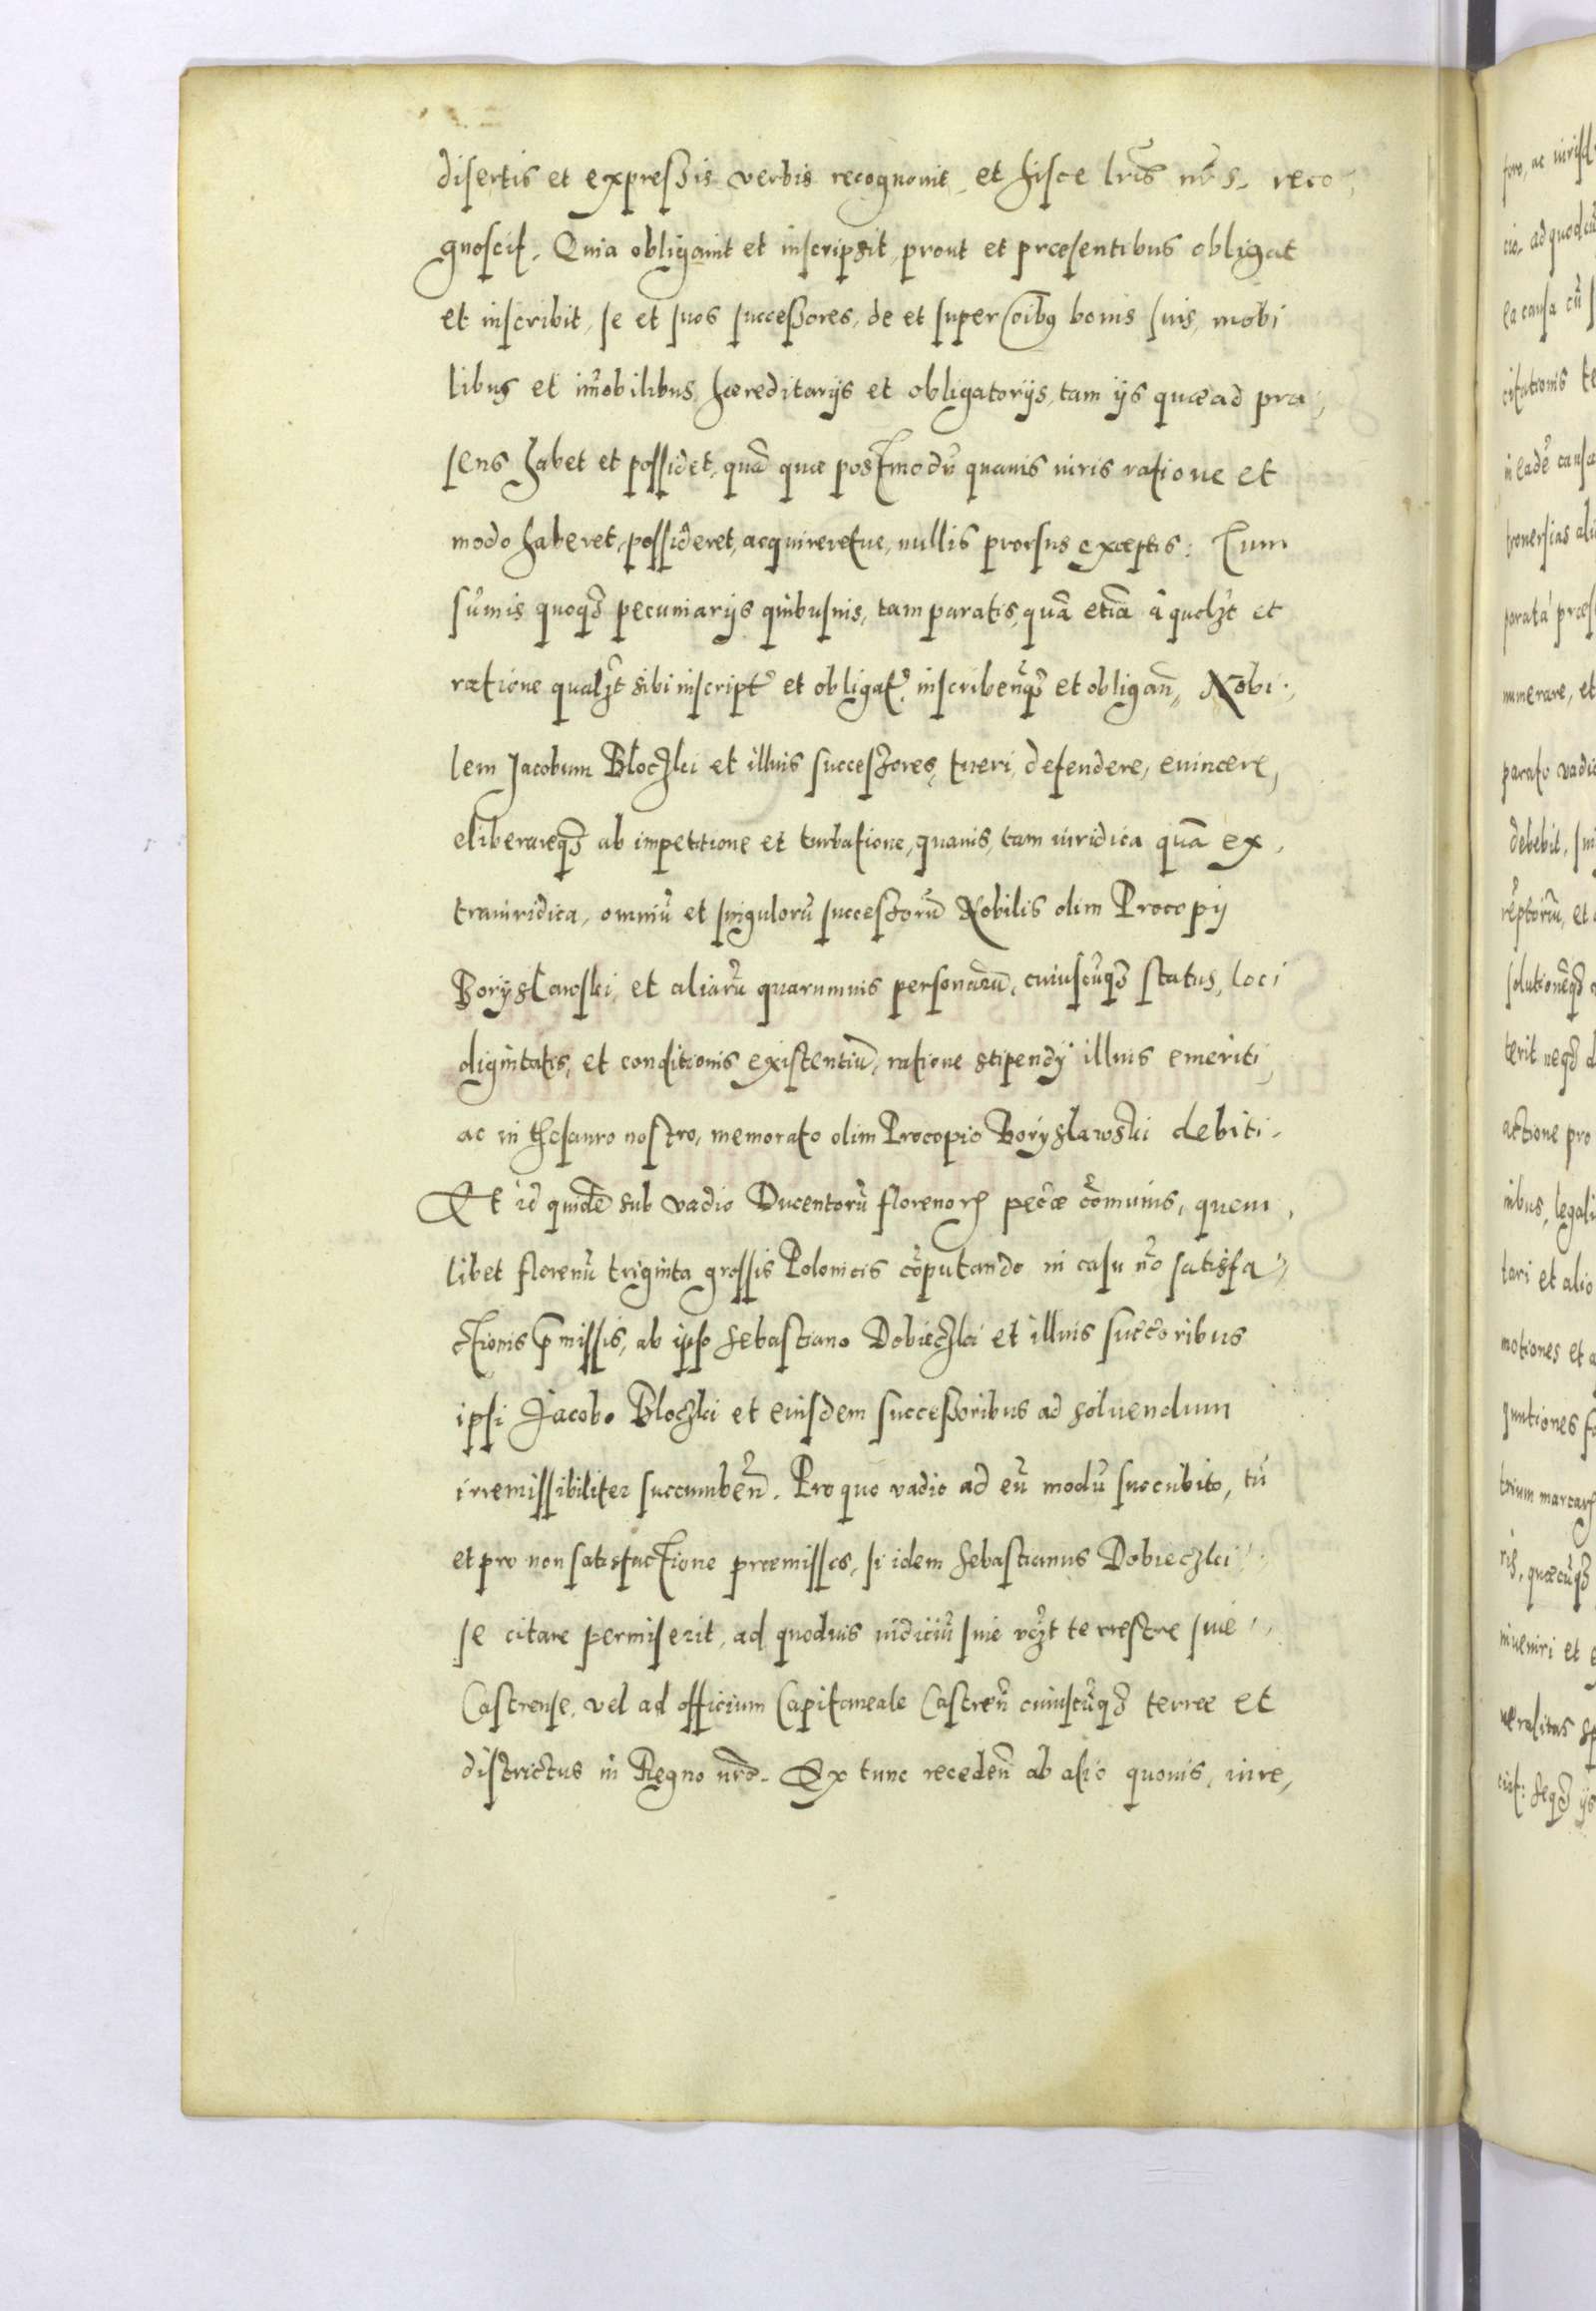 disertis et expressis verbis recognovit, et hisce lr̃is nr̃is. reco,
gnoscit. Quia obligauit et inscripsit, prout et præsentibus obligat
et inscribit, se et suos successores, de et super oĩbus bonis suis, mobi
libus et im̃obilibus, hæreditarijs et obligatorijs, tam ijs quæ ad præ,
sens habet et possidet, quã quæ postmodũ quauis iuris ratione et
modo haberet, possideret, acquireretue, nullis prorsus exceptis: Tum
sum̃is quoqȝ pecuniarijs quibusuis, tam paratis, quã etiã à quolȝt et
ratione qualȝt sibi inscript' et obligat', inscribenqȝ et obligan̄, Nobi,
lem Jacobum Bloczki et illius successores, tueri, defendere, euincere,
eliberareqȝ ab impetitione et turbatione, quauis, tam iuridica quã ex,
traiuridica, omniũ et singulorũ successorũ Nobilis olim Procopij
Boryslawski, et aliarũ quarumuis personarũ, cuiuscũqȝ status, loci
dignitatis, et conditionis existentiũ, ratione stipendij illius emeriti,
ac in thesauro nostro, memorato olim Procopio Boryslawski debiti.
Et id quidẽ sub vadio Ducentorũ florenorꝝ pec̃æ com̃unis, quem,
libet florenũ triginta grossis Polonicis cõputando in casu nõ satisfa,,
ctionis p̃missis, ab ipso Sebastiano Dobieczki et illius succ̃oribus
ipsi Jacobo Bloczki et eiusdem successoribus ad soluendum
irremissibiliter succumben̄. Pro quo vadio ad eũ modũ succubito, tũ
et pro non satisfactione præmissos, si idem Sebastianus Dobieczki
se citare permiserit, ad quoduis iudiciũ siue vȝt terrestre siue,
Castrense, vel ad officium Capitaneale Castren̄ cuiuscũqȝ terræ et
districtus in Regno nr̃o. Ex tunc receden̄ ab alio quouis, iure,